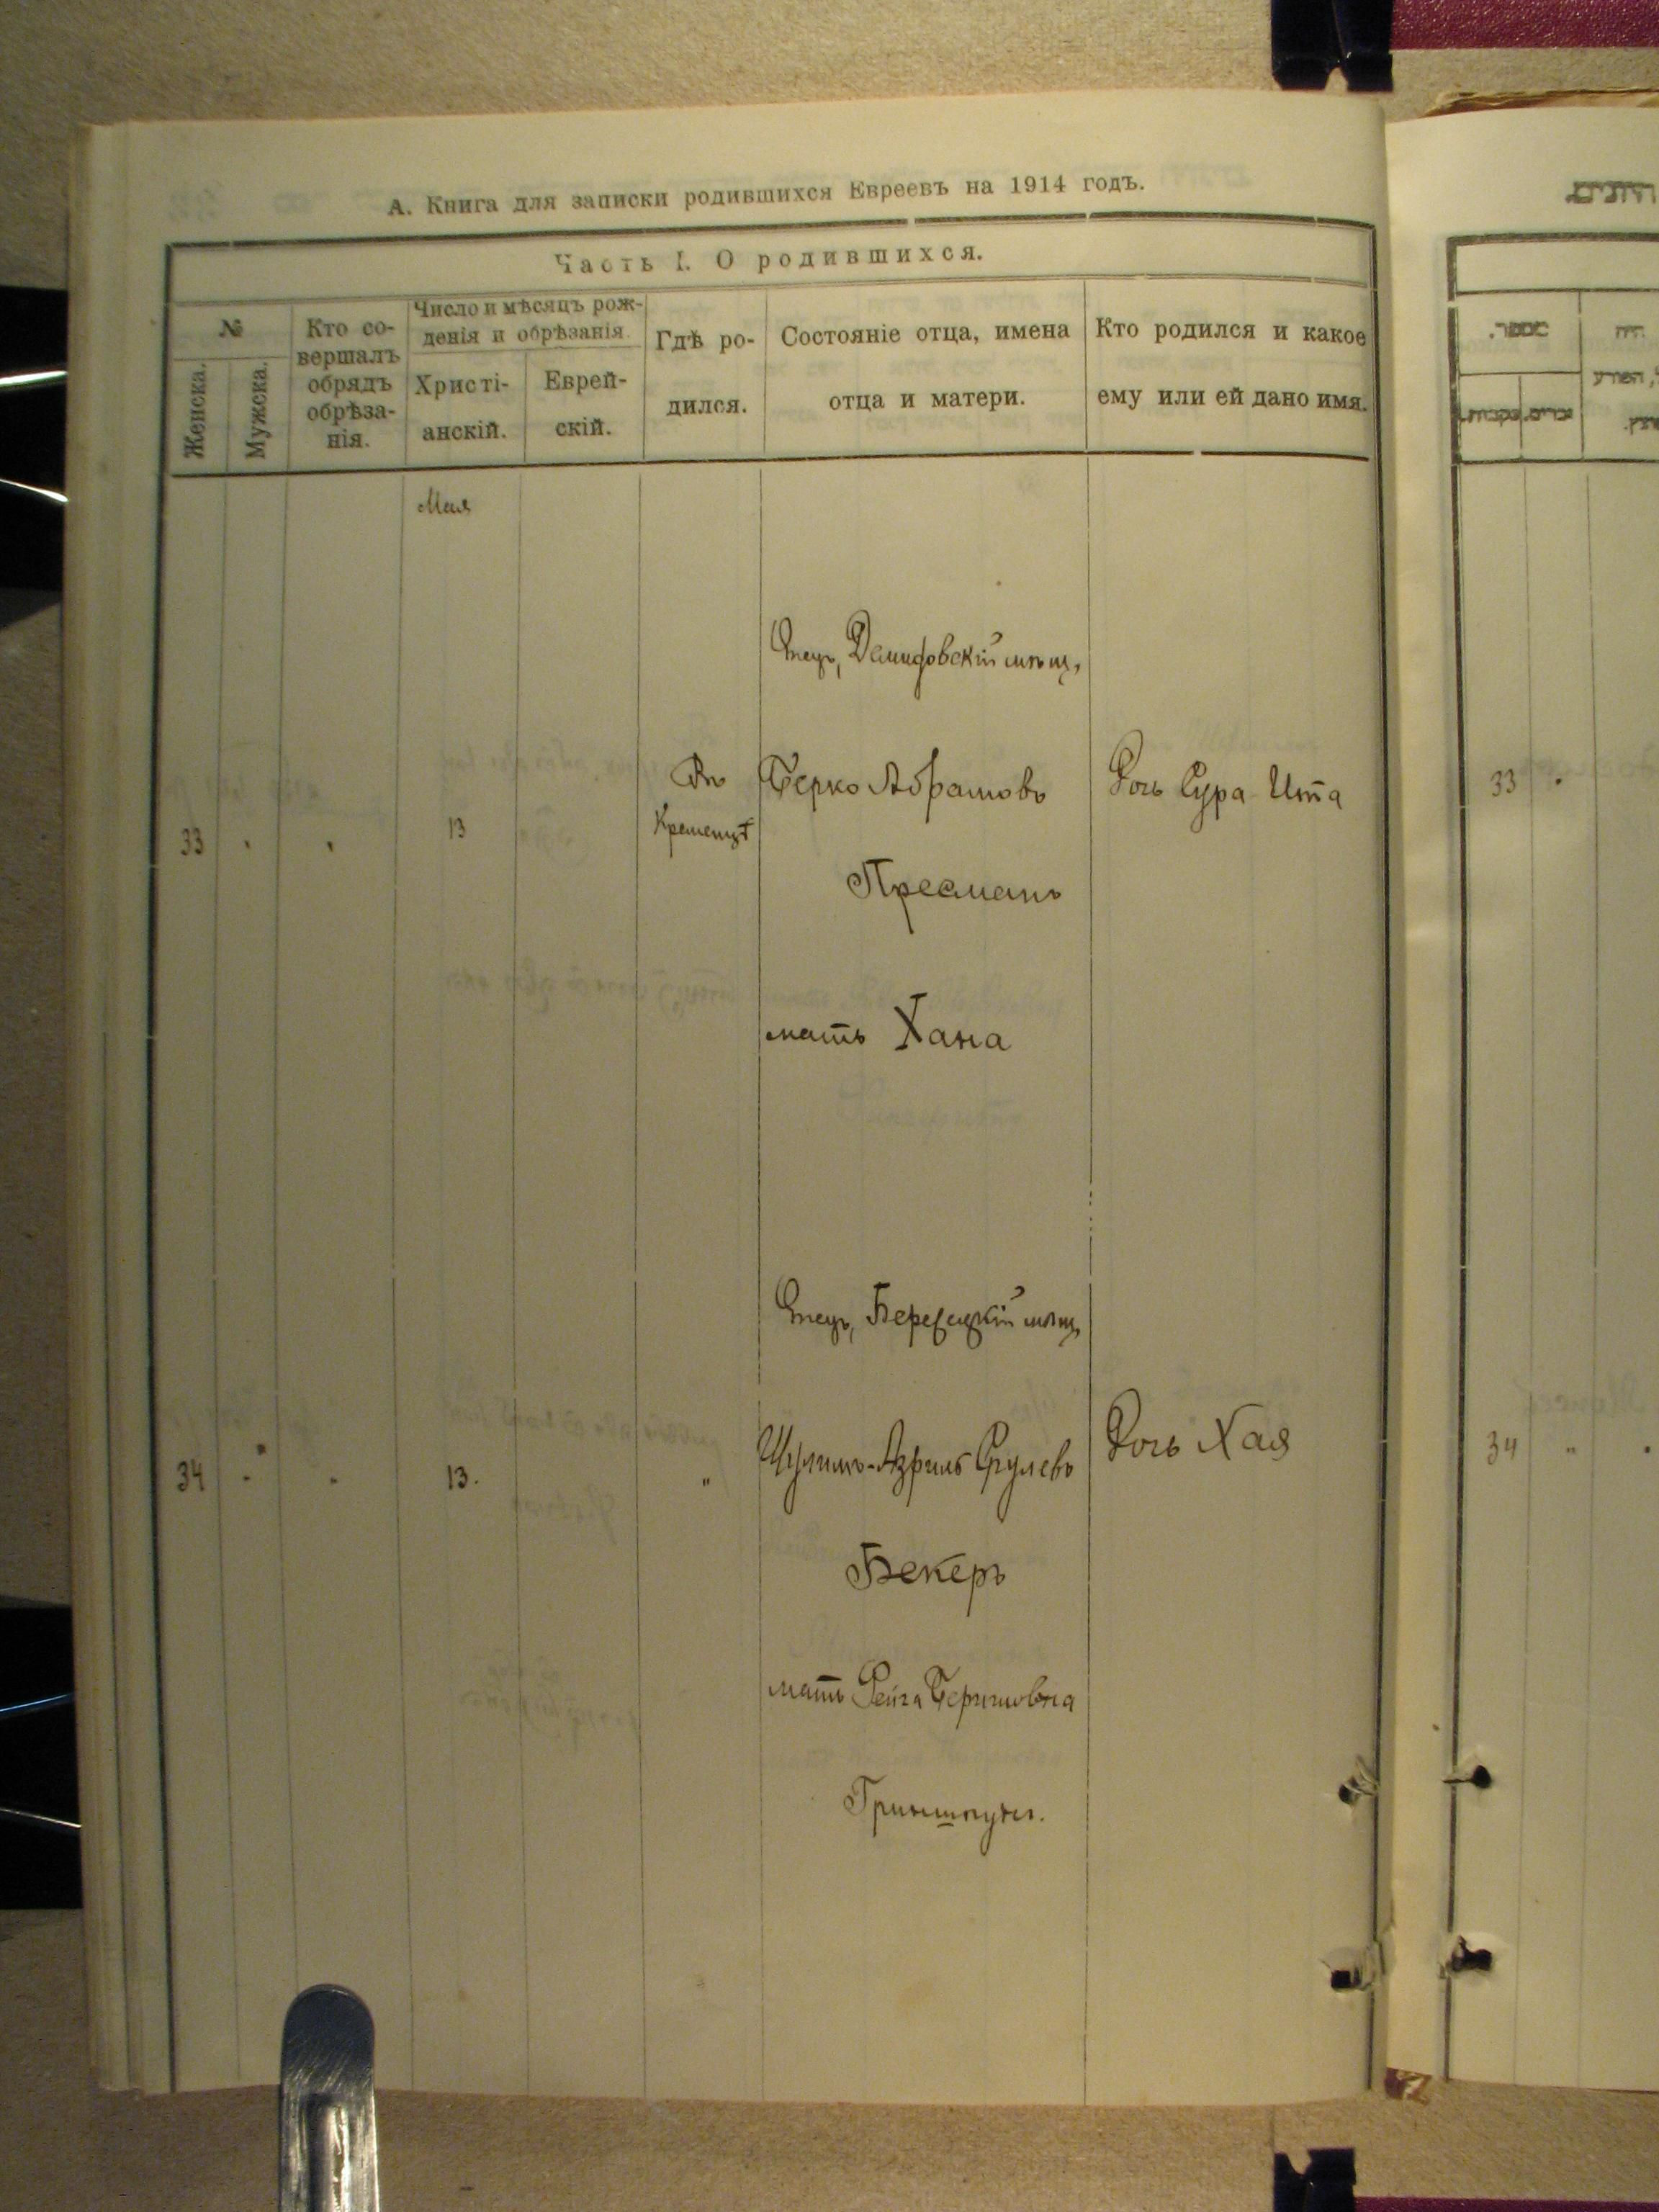 А. Книга для записки родившихся Евреевъ на 1914 годъ.
Часть I. О родившихся.
№
Женска.
Мужска.
Кто со-
вершалъ
обрядъ
обрѣза-
нія.
Число и мѣсяцъ рож-
денія и обрѣзанія.
Христі-
анскій.
Еврей-
скій.
Гдѣ ро-
дился.
Состояніе отца, имена
отца и матери.
Кто родился и какое
ему или ей дано имя.
Мая
Отецъ, мѣщ,
33 " " 13
Въ
Кременцѣ
Берко Абрамовъ
Пресманъ
мать Хана
Дочь Сура Ита
Отецъ, Берездецкій мѣщ,
34 " " 13. "
Шулимъ-Азриль Срулевъ
Бекеръ
мать Рейзя Беришовна
Гриншпунъ.
Дочь Хая
מספר.
זכרים.
33 "
34 " "